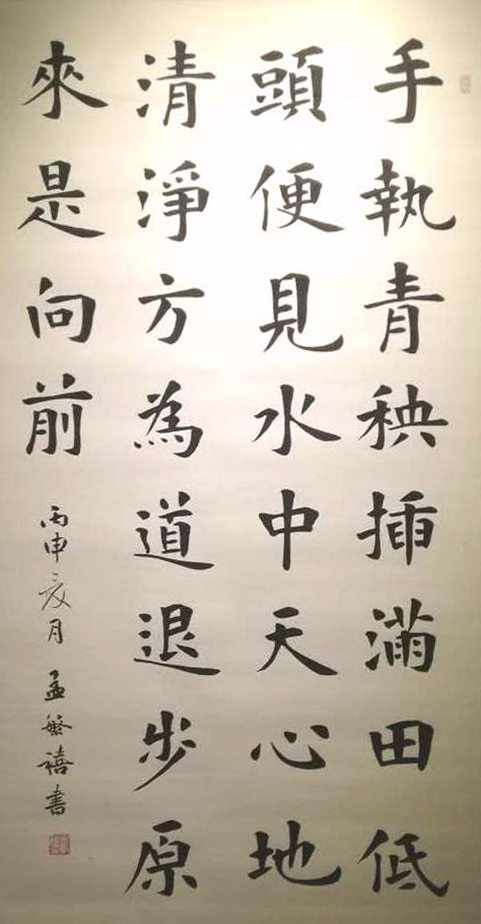 手執青秧插滿田低
頭便見水中天心地
清淨方為道退步原
來是向前
丙申亥月孟繁禧書